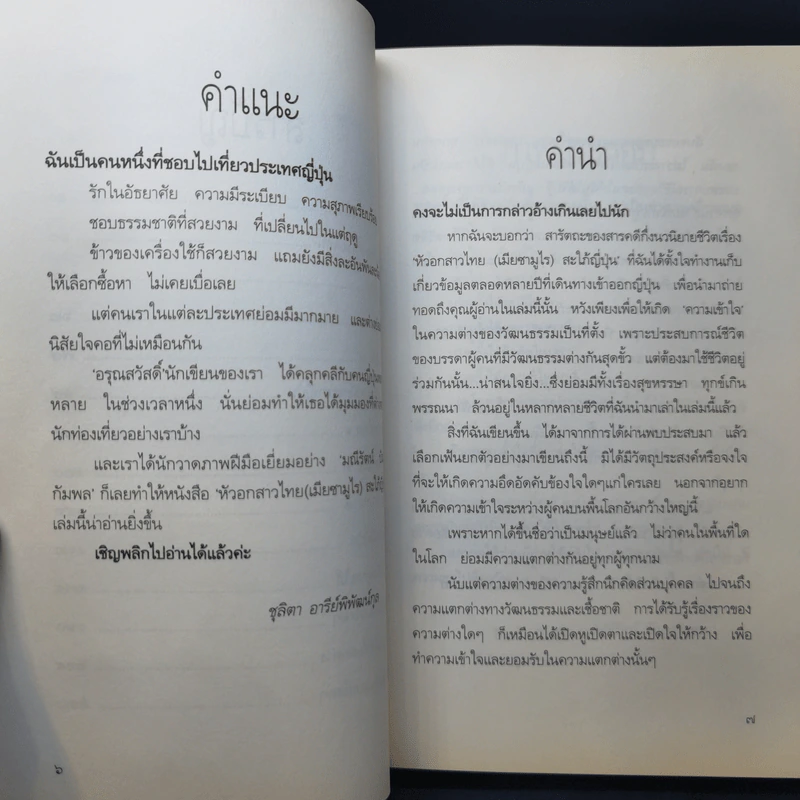 คำแนะ
ฉันเป็นคนหนึ่งที่ชอบไปเที่ยวประเทศญี่ปุ่น
รักในอัธยาศัย ความมีระเบียบ ความสุภาพเรียบร้อย
ชอบธรรมชาติที่สวยงาม ที่เปลี่ยนไปในแต่ฤดู
ข้าวของเครื่องใช้ก็สวยงาม แถมยังมีสิ่งละอันพันละ
ให้เลือกซื้อหา ไม่เคยเบื่อเลย
แต่คนเราในแต่ละประเทศย่อมมีมากมาย และต่าง
นิสัยใจคอที่ไม่เหมือนกัน
'อรุณสวัสดิ์'นักเขียนของเรา ได้คลุกคลีกับคนญี่ปุ่น
หลาย ในช่วงเวลาหนึ่ง นั่นย่อมทำให้เธอได้มุมมองที่
นักท่องเที่ยวอย่างเราบ้าง
และเราได้นักวาดภาพฝีมือเยี่ยมอย่าง 'มณีรัตน์
กัมพล' ก็เลยทำให้หนังสือ 'หัวอกสาวไทย(เมียซามูไร) สะใภ้
เล่มนี้น่าอ่านยิ่งขึ้น
เชิญพลิกไปอ่านได้แล้วค่ะ
ชุลิตา อารีย์พิพัฒน์กุล
๖
คำนำ
คงจะไม่เป็นการกล่าวอ้างเกินเลยไปนัก
หากฉันจะบอกว่า สารัตถะของสารคดีกึ่งนวนิยายชีวิตเรื่อง
'หัวอกสาวไทย (เมียซามูไร) สะใภ้ญี่ปุ่น' ที่ฉันได้ตั้งใจทำงานเก็บ
เกี่ยวข้อมูลตลอดหลายปีที่เดินทางเข้าออกญี่ปุ่น เพื่อนำมาถ่าย
ทอดถึงคุณผู้อ่านในเล่มนี้นั้น หวังเพียงเพื่อให้เกิด 'ความเข้าใจ'
ในความต่างของวัฒนธรรมเป็นที่ตั้ง เพราะประสบการณ์ชีวิต
ของบรรดาผู้คนที่มีวัฒนธรรมต่างกันสุดขั้ว แต่ต้องมาใช้ชีวิตอยู่
ร่วมกันนั้น...น่าสนใจยิ่ง...ซึ่งย่อมมีทั้งเรื่องสุขหรรษา ทุกข์เกิน
พรรณนา ล้วนอยู่ในหลากหลายชีวิตที่ฉันนำมาเล่าในเล่มนี้แล้ว
สิ่งที่ฉันเขียนขึ้น ได้มาจากการได้ผ่านพบประสบมา แล้ว
เลือกเฟ้นยกตัวอย่างมาเขียนถึงนี้ มิได้มีวัตถุประสงค์หรือจงใจ
ที่จะให้เกิดความอึดอัดคับข้องใจใดๆแก่ใครเลย นอกจากอยาก
ให้เกิดความเข้าใจระหว่างผู้คนบนพื้นโลกอันกว้างใหญ่นี้
เพราะหากได้ขึ้นชื่อว่าเป็นมนุษย์แล้ว ไม่ว่าคนในพื้นที่ใด
ในโลก ย่อมมีความแตกต่างกันอยู่ทุกผู้ทุกนาม
นับแต่ความต่างของความรู้สึกนึกคิดส่วนบุคคล ไปจนถึง
ความแตกต่างทางวัฒนธรรมและเชื้อชาติ การได้รับรู้เรื่องราวของ
ความต่างใดๆ ก็เหมือนได้เปิดหูเปิดตาและเปิดใจให้กว้าง เพื่อ
ทำความเข้าใจและยอมรับในความแตกต่างนั้นๆ
๗